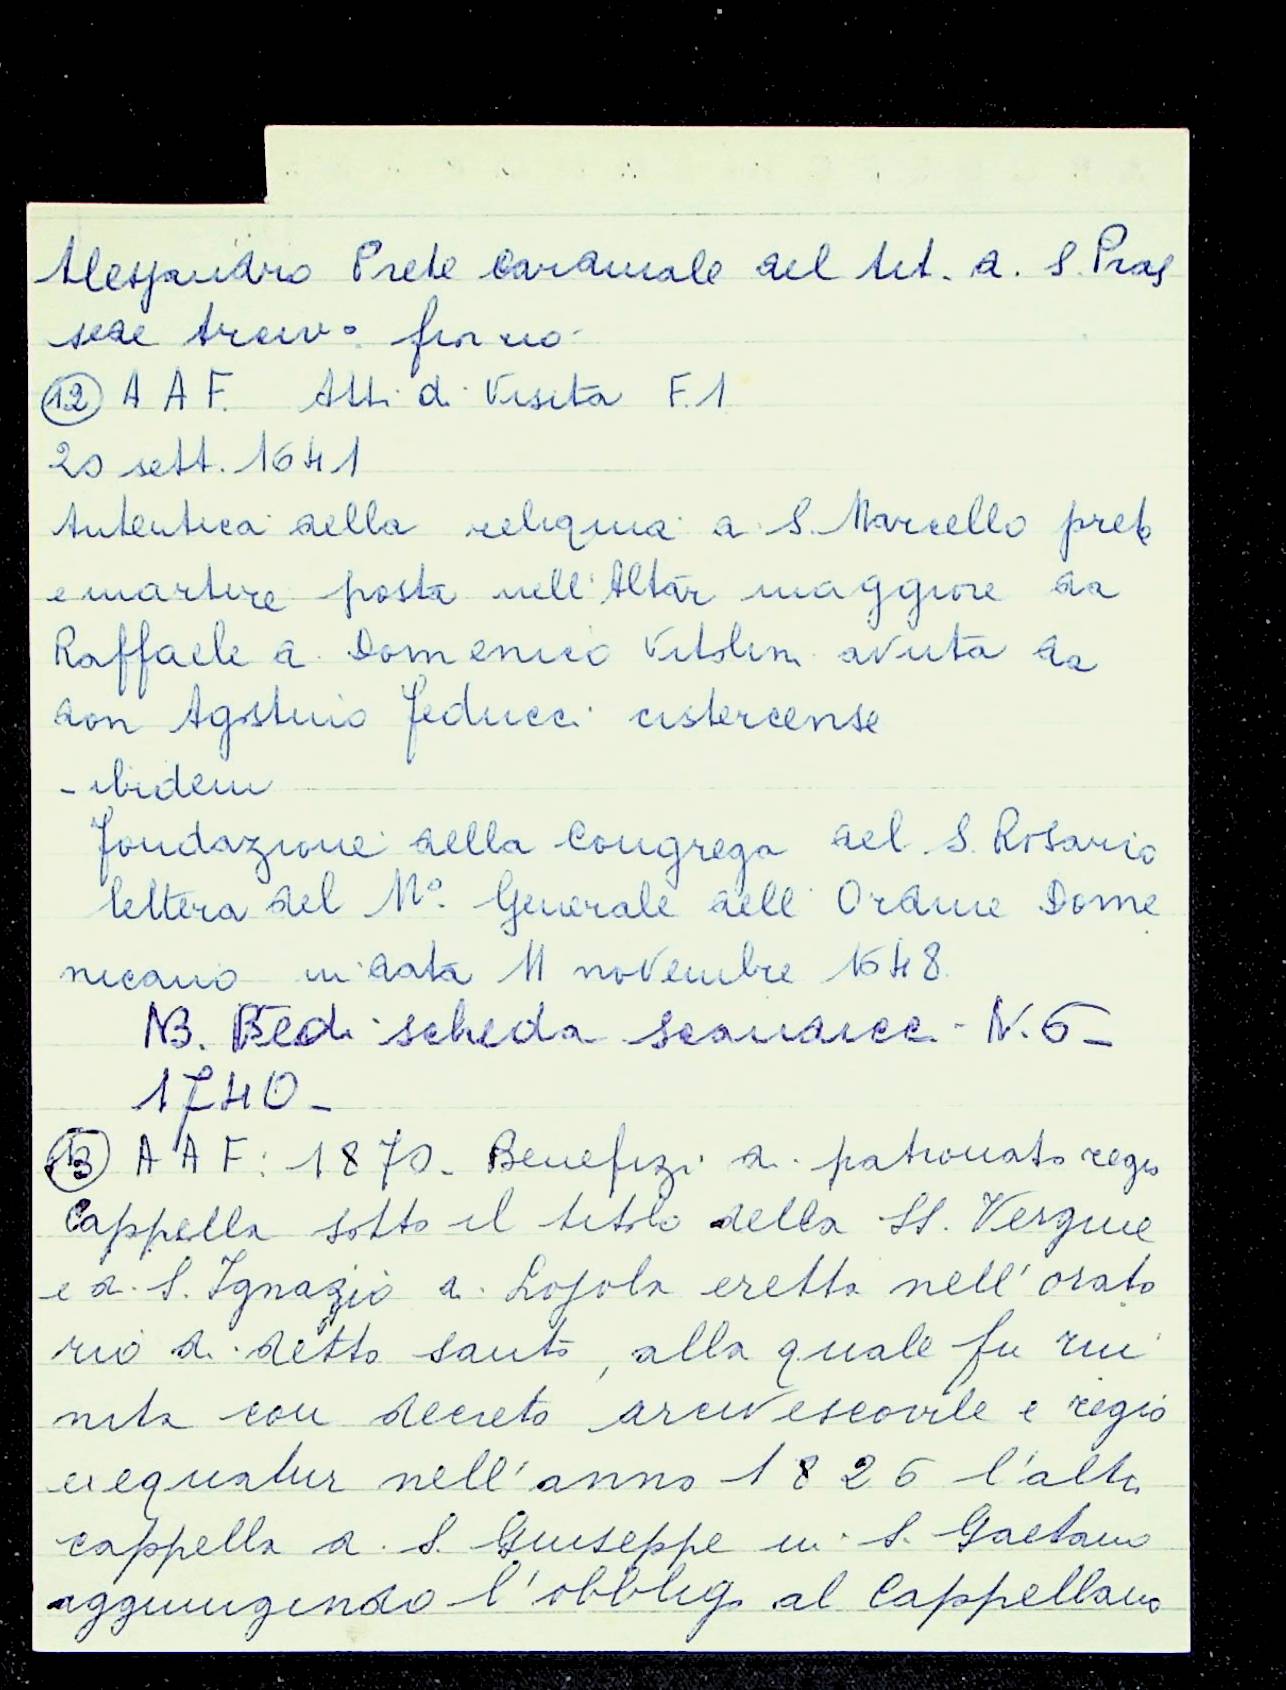 Alessandro Prete Cardinale del tit. di S. Pras
sede Arciv.º fior.no
(12) A A F. Atti di Visita F. 1
20 sett. 1641
Autentica della reliquia di S. Marcello prete
e martire posta nell'Altar maggiore da
Raffaele di Domenico Vitolini avuta da
don Agostino Feducci cistercense
- ibidem
Fondazione della Congrega del S. Rosario
lettera del M.º Generale dell'Ordine Dome
nicano in data 11 novembre 1648
NB. Vedi scheda scandicc. N. 6 -
1740 -
(13) A A F: 1870 - Benefizi di patronato regio
Cappella sotto il titolo della SS. Vergine
e di S. Ignazio di Lojola eretta nell'orato
rio di detto santo, alla quale fu riu
nita con decreto arcivescovile e regio
exequatur nell'anno 1826 l'altra
cappella di S. Giuseppe in S. Gaetano
aggiungendo l'obbligo al Cappellano